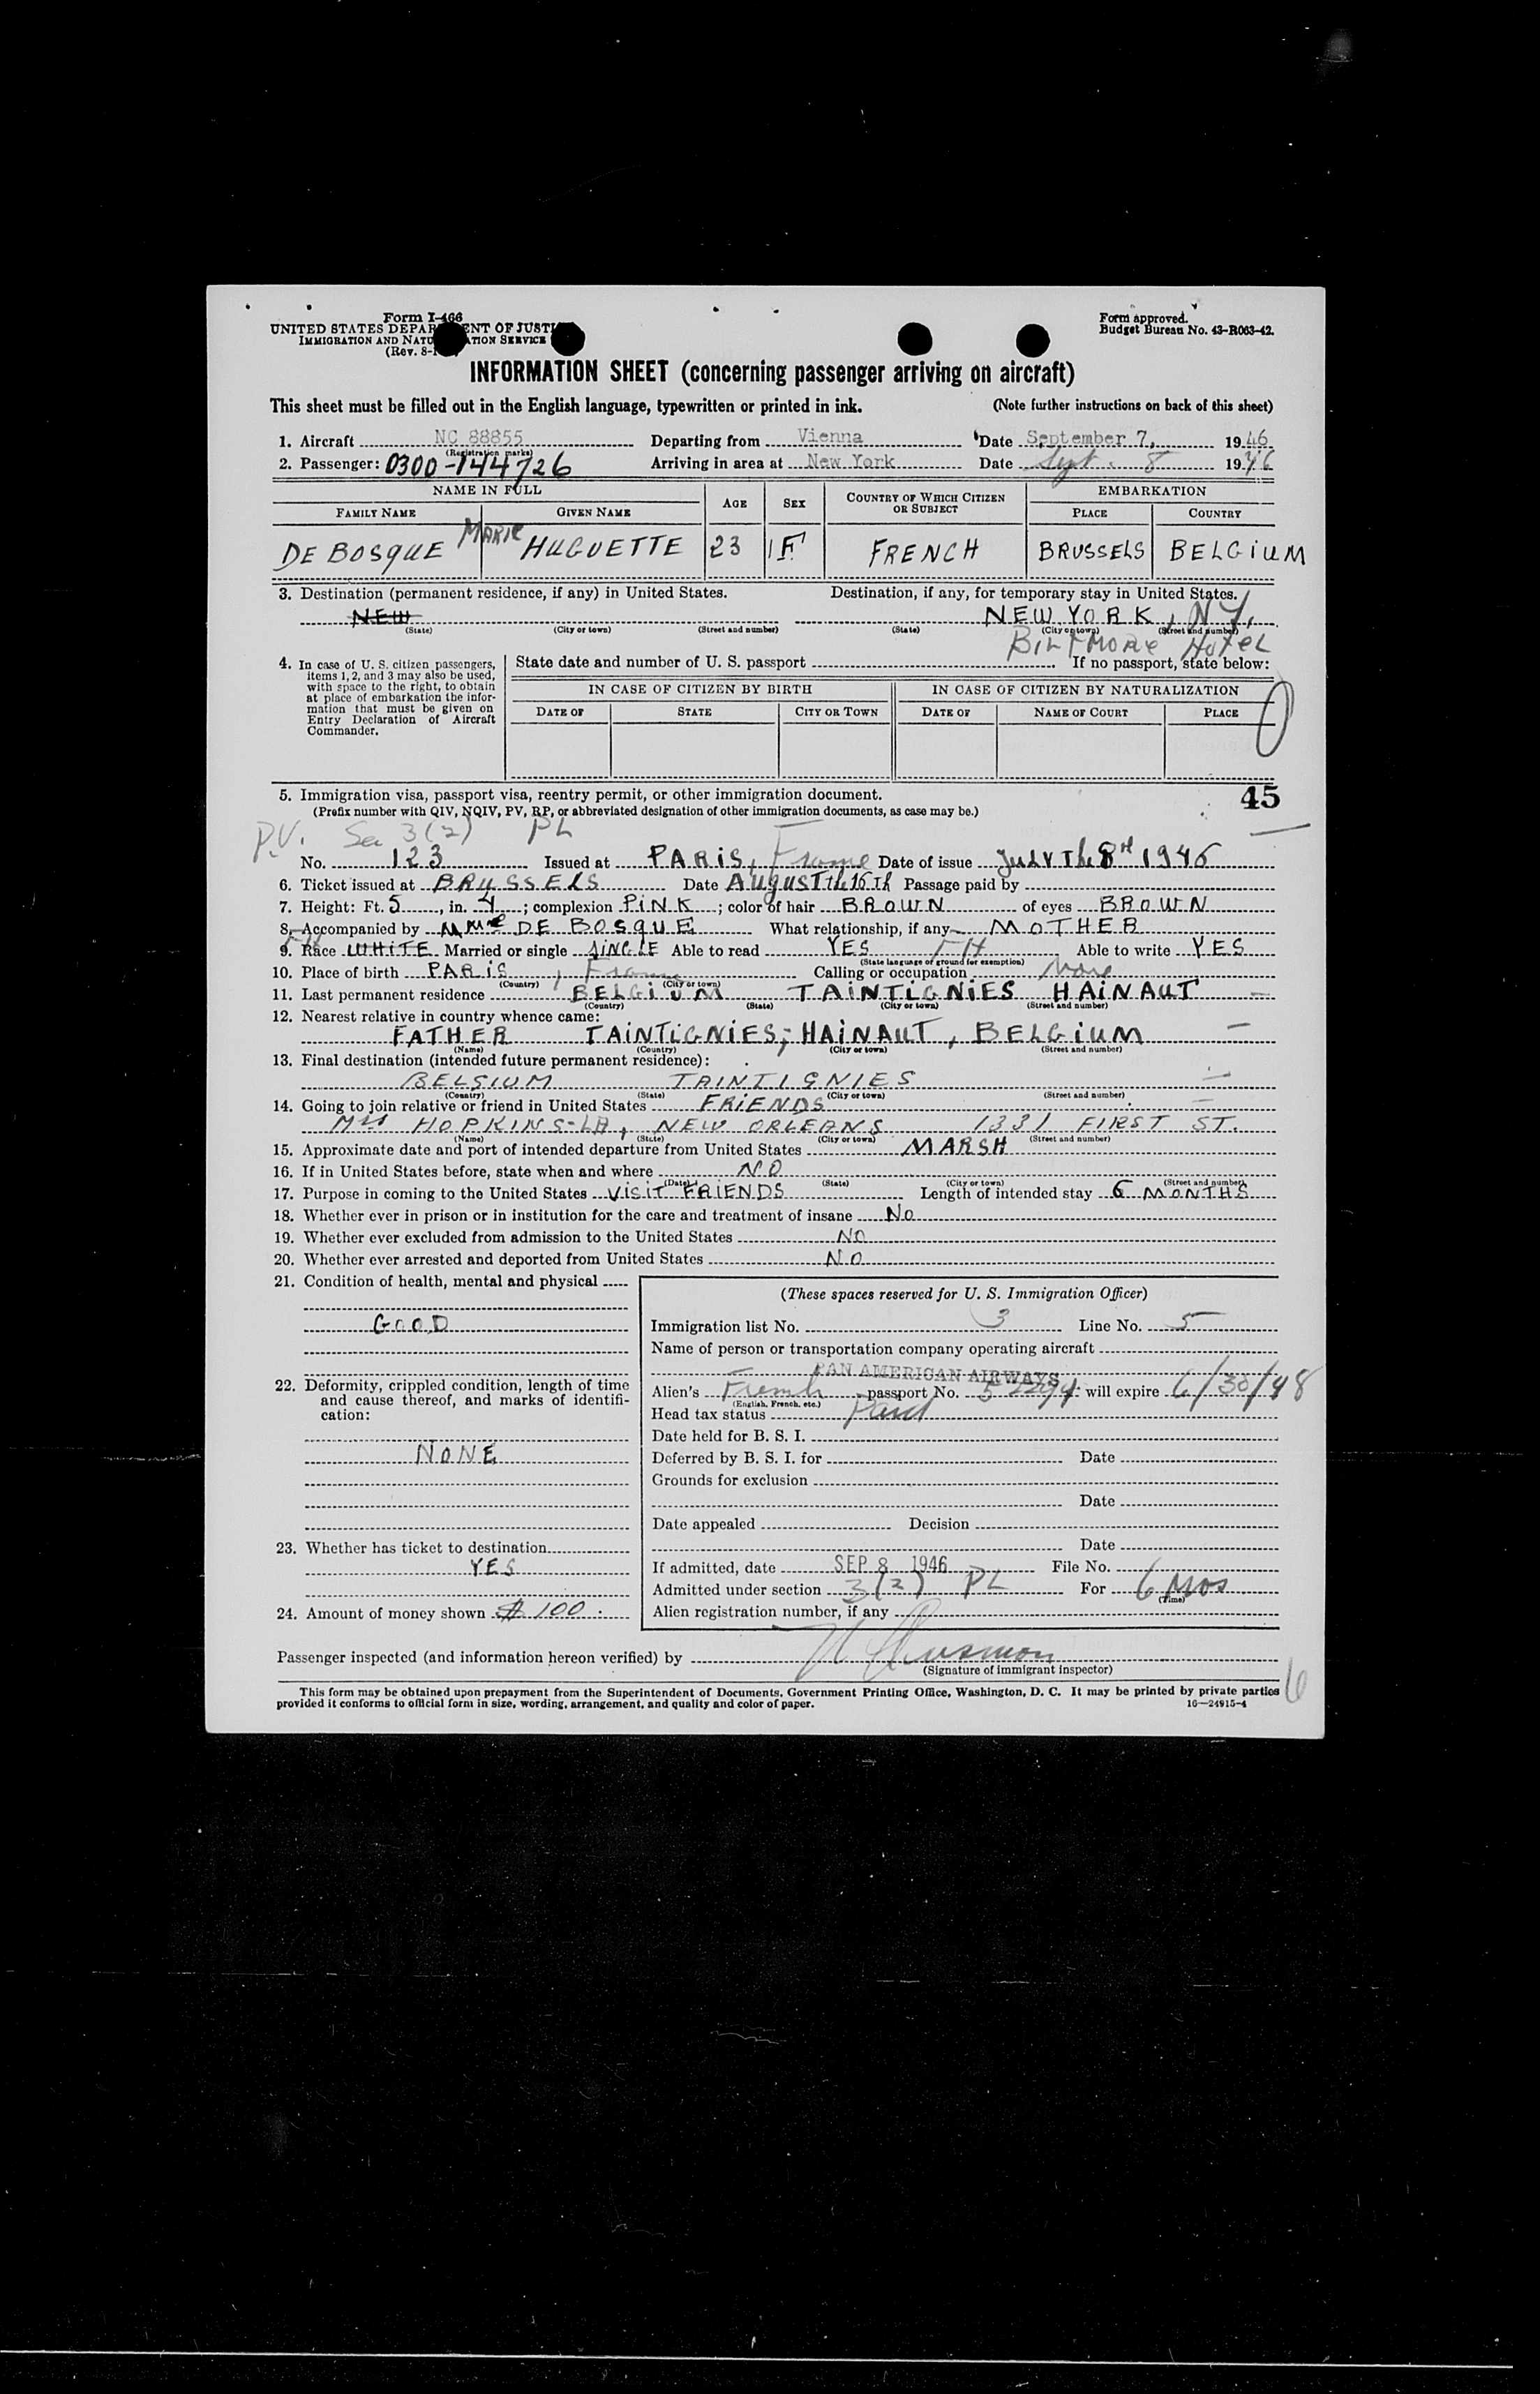 Form I-466
UNITED STATES DEPAR ENT OF JUSTI
IMMIGRATION AND NATU ATION SERVICE
(Rev. 8-1
Form approved.
Budget Bureau No. 43-R063-42.
INFORMATION SHEET (concerning passenger arriving on aircraft)
This sheet must be filled out in the English language, typewritten or printed in ink. (Note further instructions on back of this sheet)
1. Aircraft NC 88855 Departing from Vienna Date September 7, 1946
(Registration marks)
2. Passenger: 0300-144726 Arriving in area at New York Date Sept. 8 1946
NAME IN FULL AGE SEX COUNTRY OF WHICH CITIZEN OR SUBJECT EMBARKATION
FAMILY NAME GIVEN NAME PLACE COUNTRY
DE BOSQUE MARIE HUGUETTE 23 F FRENCH BRUSSELS BELGIUM
3. Destination (permanent residence, if any) in United States. Destination, if any, for temporary stay in United States.
NEW NEW YORK, NY,
(State) (City or town) (Street and number) (State) (City or town) (Street and number)
BILTMORE HOTEL
4. In case of U. S. citizen passengers, items 1, 2, and 3 may also be used, with space to the right, to obtain at place of embarkation the information that must be given on Entry Declaration of Aircraft Commander.
State date and number of U. S. passport If no passport, state below:
IN CASE OF CITIZEN BY BIRTH IN CASE OF CITIZEN BY NATURALIZATION
DATE OF STATE CITY OR TOWN DATE OF NAME OF COURT PLACE
45
5. Immigration visa, passport visa, reentry permit, or other immigration document.
(Prefix number with QIV, NQIV, PV, RP, or abbreviated designation of other immigration documents, as case may be.)
P.V. Sec 3(2) PL
No. 123 Issued at PARIS, France Date of issue JULY The 8TH 1946
6. Ticket issued at BRUSSELS Date AUGUST the 16TH Passage paid by
7. Height: Ft. 5, in. 4; complexion PINK; color of hair BROWN of eyes BROWN
8. Accompanied by MME DE BOSQUE What relationship, if any MOTHER
9. Race WHITE Married or single SINGLE Able to read YES FH Able to write YES
(State language or ground for exemption)
10. Place of birth PARIS, France Calling or occupation None
(Country) (City or town)
11. Last permanent residence BELGIUM TAINTIGNIES HAINAUT
(Country) (State) (City or town) (Street and number)
12. Nearest relative in country whence came:
FATHER TAINTIGNIES, HAINAUT, BELGIUM
(Name) (Country) (City or town) (Street and number)
13. Final destination (intended future permanent residence):
BELGIUM TAINTIGNIES
(Country) (State) (City or town) (Street and number)
14. Going to join relative or friend in United States FRIENDS
Mrs HOPKINS-LA, NEW ORLEANS 1331 FIRST ST.
(Name) (State) (City or town) (Street and number)
15. Approximate date and port of intended departure from United States MARSH
16. If in United States before, state when and where NO
(Date) (State) (City or town) (Street and number)
17. Purpose in coming to the United States VISIT FRIENDS Length of intended stay 6 MONTHS
18. Whether ever in prison or in institution for the care and treatment of insane NO
19. Whether ever excluded from admission to the United States NO
20. Whether ever arrested and deported from United States NO
21. Condition of health, mental and physical
GOOD
22. Deformity, crippled condition, length of time and cause thereof, and marks of identification:
NONE
23. Whether has ticket to destination
YES
24. Amount of money shown $ 100.
(These spaces reserved for U. S. Immigration Officer)
Immigration list No. 3 Line No. 5
Name of person or transportation company operating aircraft
PAN AMERICAN AIRWAYS
Alien's French passport No. 52294 will expire 6/30/48
(English, French, etc.)
Head tax status Paid
Date held for B. S. I.
Deferred by B. S. I. for Date
Grounds for exclusion
Date
Date appealed Decision
Date
If admitted, date SEP 8 1946 File No.
Admitted under section 3(2) PL For 6 Mos
(Time)
Alien registration number, if any
Passenger inspected (and information hereon verified) by
(Signature of immigrant inspector)
This form may be obtained upon prepayment from the Superintendent of Documents, Government Printing Office, Washington, D. C. It may be printed by private parties
provided it conforms to official form in size, wording, arrangement, and quality and color of paper. 16—24915-4